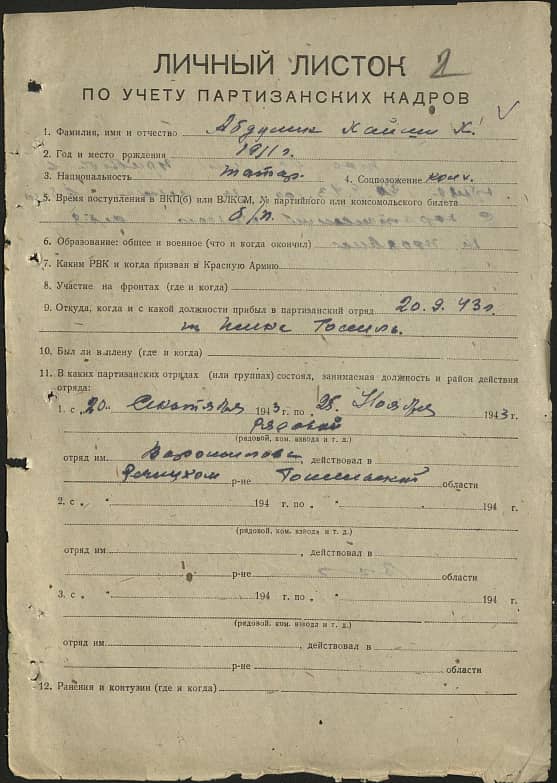 ЛИЧНЫЙ ЛИСТОК 2
ПО УЧЕТУ ПАРТИЗАНСКИХ КАДРОВ
1. Фамилия, имя и отчество Х.
2. Год и место рождения 1911 г.
3. Национальность татар. 4. Соцположение
5. Время поступления в ВКП(б) или ВЛКСМ, № партийного или комсомольского билета
б/п.
6. Образование: общее и военное (что и когда окончил)
7. Каким РВК и когда призван в Красную Армию
8. Участие на фронтах (где и когда)
9. Откуда, когда и с какой должности прибыл в партизанский отряд 20.9.43 г.
10. Был ли в плену (где и когда)
11. В каких партизанских отрядах (или группах) состоял, занимаемая должность и район действия
отряда:
1. с „20„ 1943 г. по „ Ноября 1943 г.
рядовой
(рядовой, ком. взвода и т. д.)
отряд им. Ворошилова, действовал в
р-не области
2. с „ „ 194 г. по „ „ 194 г.
(рядовой, ком. взвода и т. д.)
отряд им. , действовал в
р-не области
3. с „ „ 194 г. по „ „ 194 г.
(рядовой, ком. взвода и т. д.)
отряд им. , действовал в
р-не области
12. Ранения и контузии (где и когда)